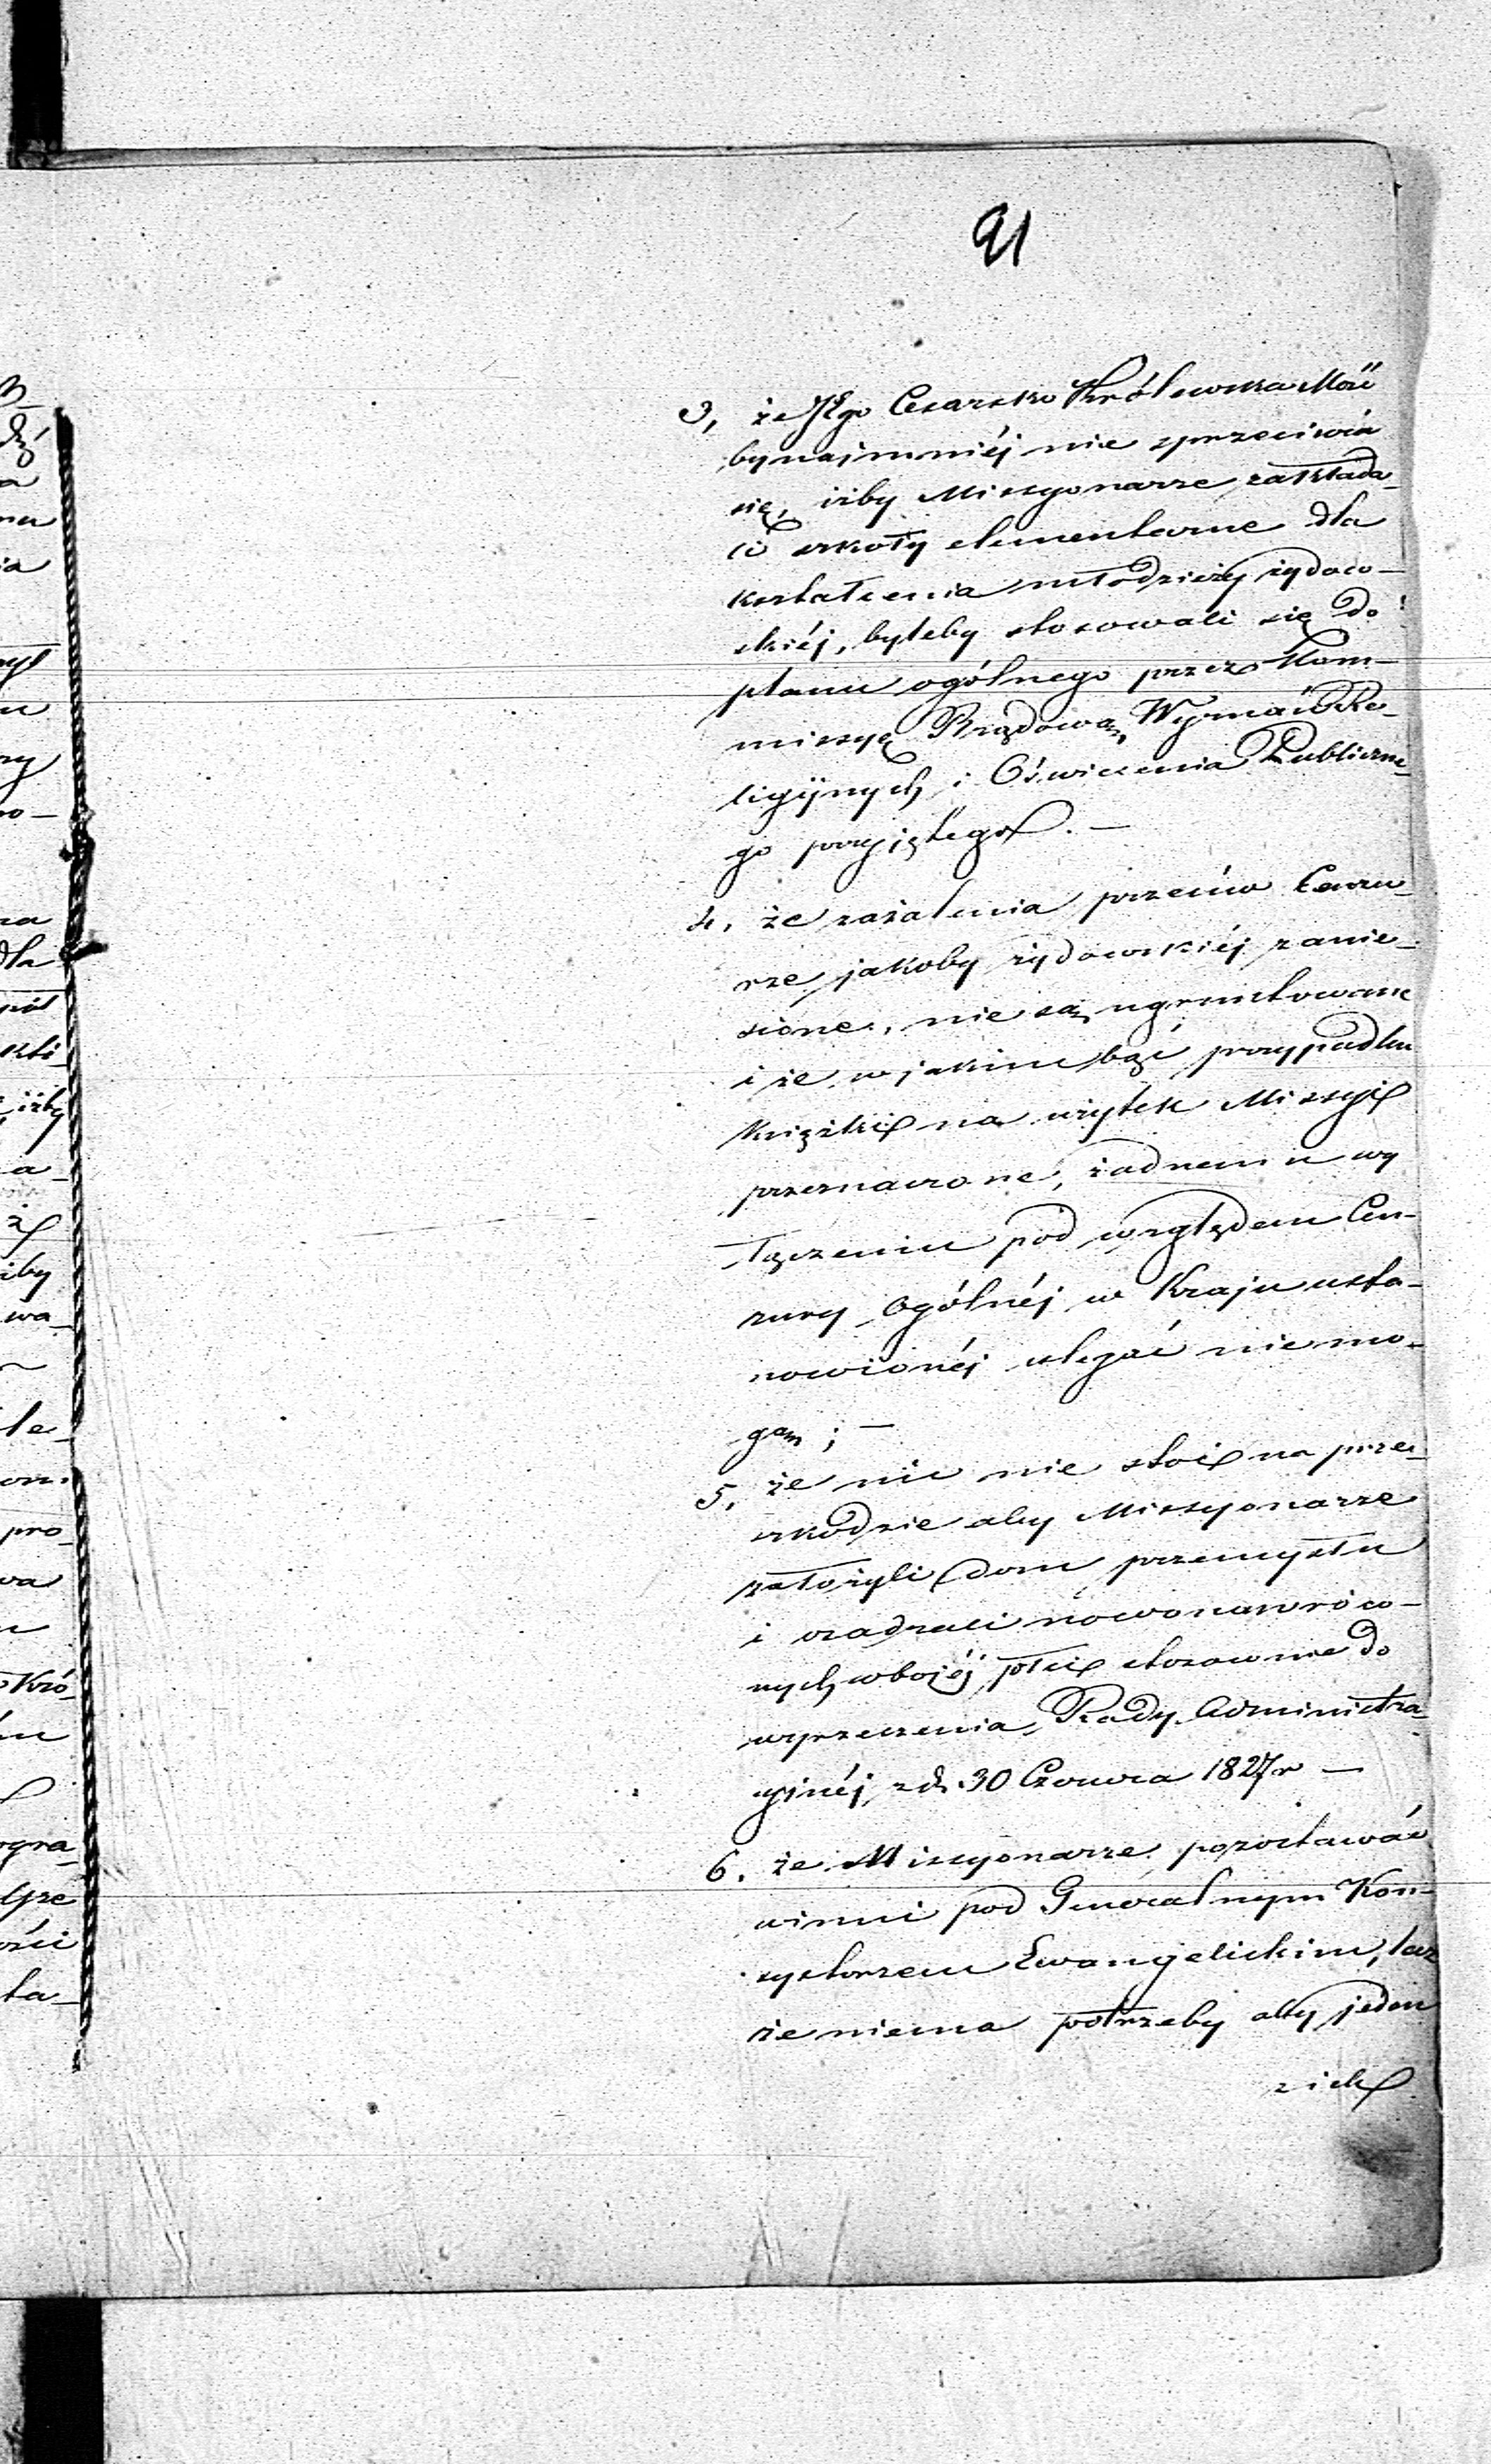 91
3, że JEgo Cesarsko Królewska Mość
bynajmniéj nie sprzeciwia
się, iżby Missyonarze zakłada_
li szkoły elementarne dla
kształcenia młodzieży żydow-
skiéj, byleby stosowali się do
planu ogólnego przez Kom-
missyę Rządową Wyznań Re_
ligijnych i Oświecenia Publiczne_
go przyjętego. —
4, że zażalenia przeciw Cenzu_
rze jakoby żydowskiéj zanie_
sione, nie są ugruntowane
i że w jakim bąć przypadku
książki na użytek Missyi
przeznaczone, żadnemu wy
łączeniu pod względem Cen-
zury ogólnéj w Kraju usta-
nowionéj uledz nie mo-
gą ; —
5, że nic nie stoi na prze_
szkodzie aby Missyonarze
założyli dom przemysłu
i osadzali nowonawróco-
nych obojéj płci stosownie do
wyrzeczenia Rady Administra_
cyjnéj z d. 30 Czerwca 1827 r —
6. że Missyonarze pozostawać
winni pod Generalnym Kon-
systorzem Ewangelickim, lecz
że niema potrzeby aby jeden
z ich